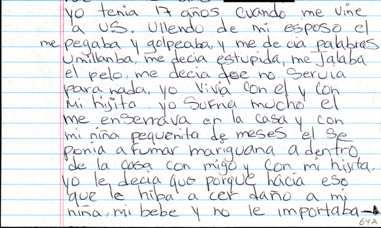 yo tenia 17 años cuando me vine
a US. Ullendo de mi esposo el
me pegaba y golpeaba y me de cia palabras
umillanba, me decia estupida, me Jalaba
el pelo, me decia que no Servia
para nada, yo Vivia Con el y Con
Mi hijita yo Sufria mucho el
me enserrava en la casa y con
mi niña pequenita de meses el se
ponia a fumar mariguana a dentro
de la casa con migo y con mi hijita.
yo le decia que porque hacia eso
que le hiba a cer daño a mi
niña, mi bebe y no le importaba
64A